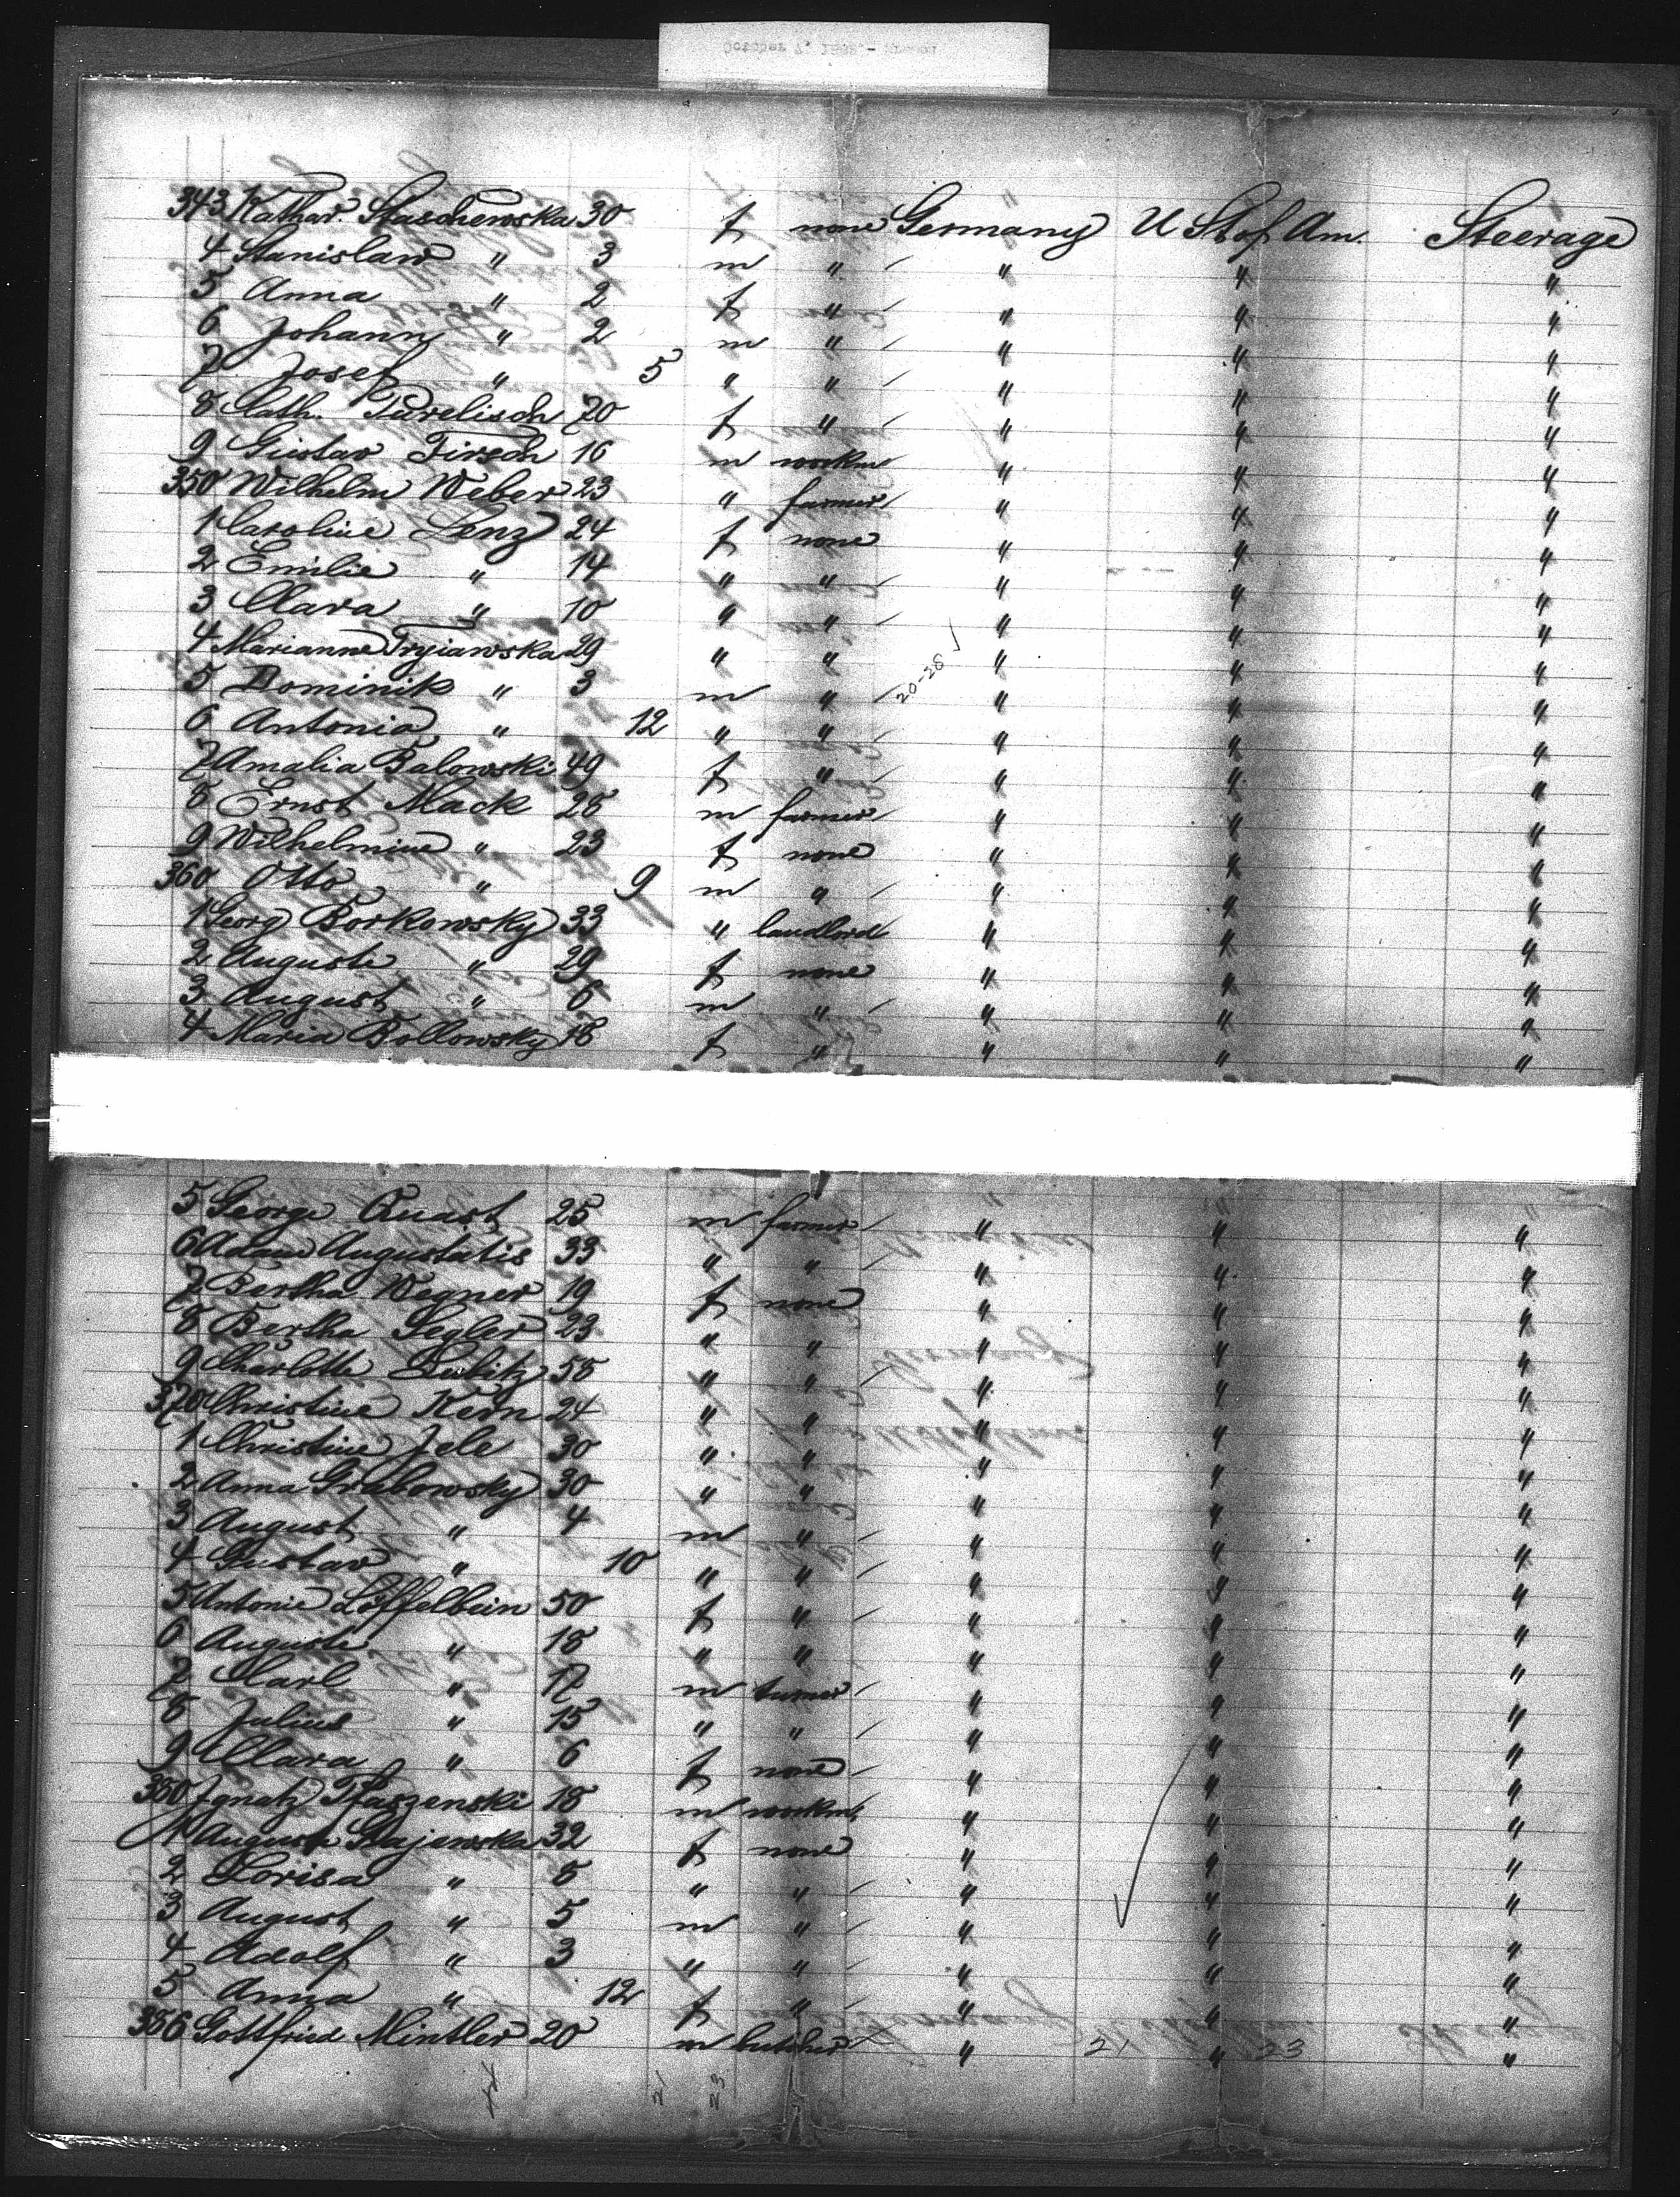 343 Kathar. Staschewska 30 f none Germany U St of Am. Steerage
4 Stanislaw " 3 m " " " "
5 Anna " 2 f " " " "
6 Johann " 2 m " " " "
7 Josef " 5 " " " " "
8 Cath. Turelisch 70 f " " " "
9 Gustav Tirsch 16 m workm " " "
350 Wilhelm Weber 23 " farmer " " "
1 Caroline Lenz 24 f none " " "
2 Emilie " 14 " " " " "
3 Clara " 10 " " " " "
4 Marianne 29 " " " " "
20-28
5 Dominik " 3 m " " " "
6 Antonia " 12 " " " " "
7 Amalia Balowski 49 f " " " "
8 Ernst Mack 28 m farmer " " "
9 Wilhelmine " 23 f none " " "
360 Otto " 9 m " " " "
1 Georg Borkowsky 33 " landlord " " "
2 Auguste " 29 f none " " "
3 August " 6 m " " " "
4 Maria Bollowsky 18 f " " " "
5 George Quast 25 m farmer " " "
6 Adam Augustatis 33 " " " " "
7 Bertha Wegner 19 f none " " "
8 Bertha Segler 23 " " " " "
9 Charlotte Lubitz 55 " " " " "
370 Christine Kern 24 " " " " "
1 Christine Jele 30 " " " " "
2 Anna Grabowsky 30 " " " " "
3 August " 4 m " " " "
4 Gustav " 10 " " " " "
5 Antonie Löffelbein 50 f " " " "
6 Auguste " 18 " " " " "
7 Carl " 17 m turner " " "
8 Julius " 15 " " " " "
9 Clara " 6 f none " " "
380 Ignatz 18 m workm " " "
1 August 32 f none " " "
2 Lorisa " 8 " " " " "
3 August " 5 m " " " "
4 Adolf " 3 " " " " "
5 Anna " 12 f " " " "
386 Gottfried Mintler 20 m butcher " 21 " 23 "
21 23